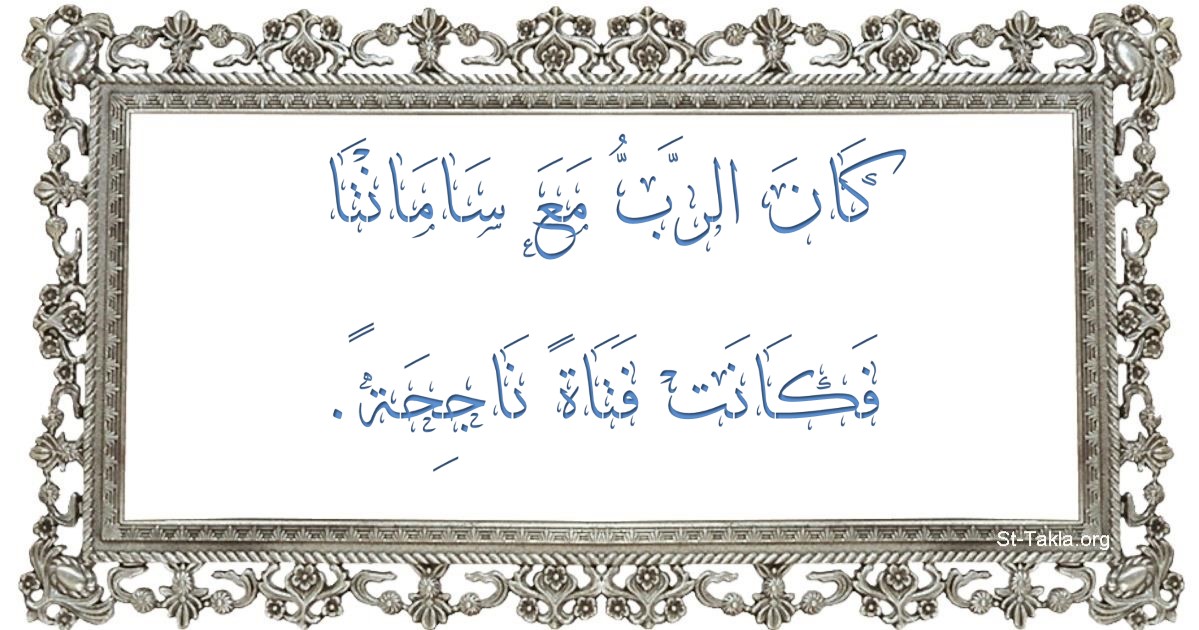 كَانَ الرَّبُّ مَعَ سَامَانْثَا
فَكَانَتْ فَتَاةً نَاجِحَةً.
St-Takla.org